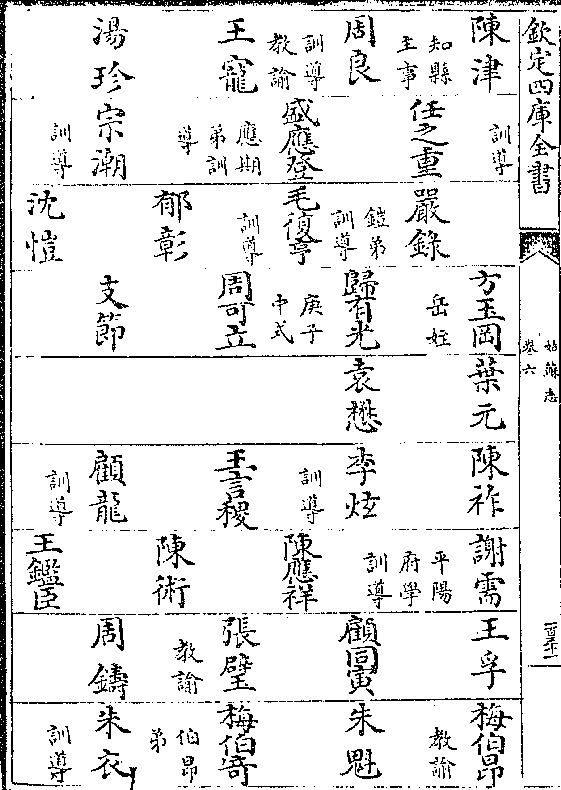 欽定四庫全書
姑蘇志
卷六
陳津
知縣
主事
周良
訓導
教諭
王寵
湯珍
訓導
任之重
盛應登
應期
弟訓
導
宗潮
訓導
嚴錄
鎧弟
訓導
毛復亨
訓導
郁彰
沈愷
方玉岡
岳姪
歸有光
庚子
中式
周可立
支節
葉元
袁懋
陳祚
李炫
訓導
王言稷
顧龍
訓導
謝需
平陽
府學
訓導
陳應祥
陳術
王鑑臣
王孚
顧同寅
張璧
教諭
周鑄
梅伯昂
教諭
朱魁
梅伯奇
伯昂
弟
朱衣
訓導